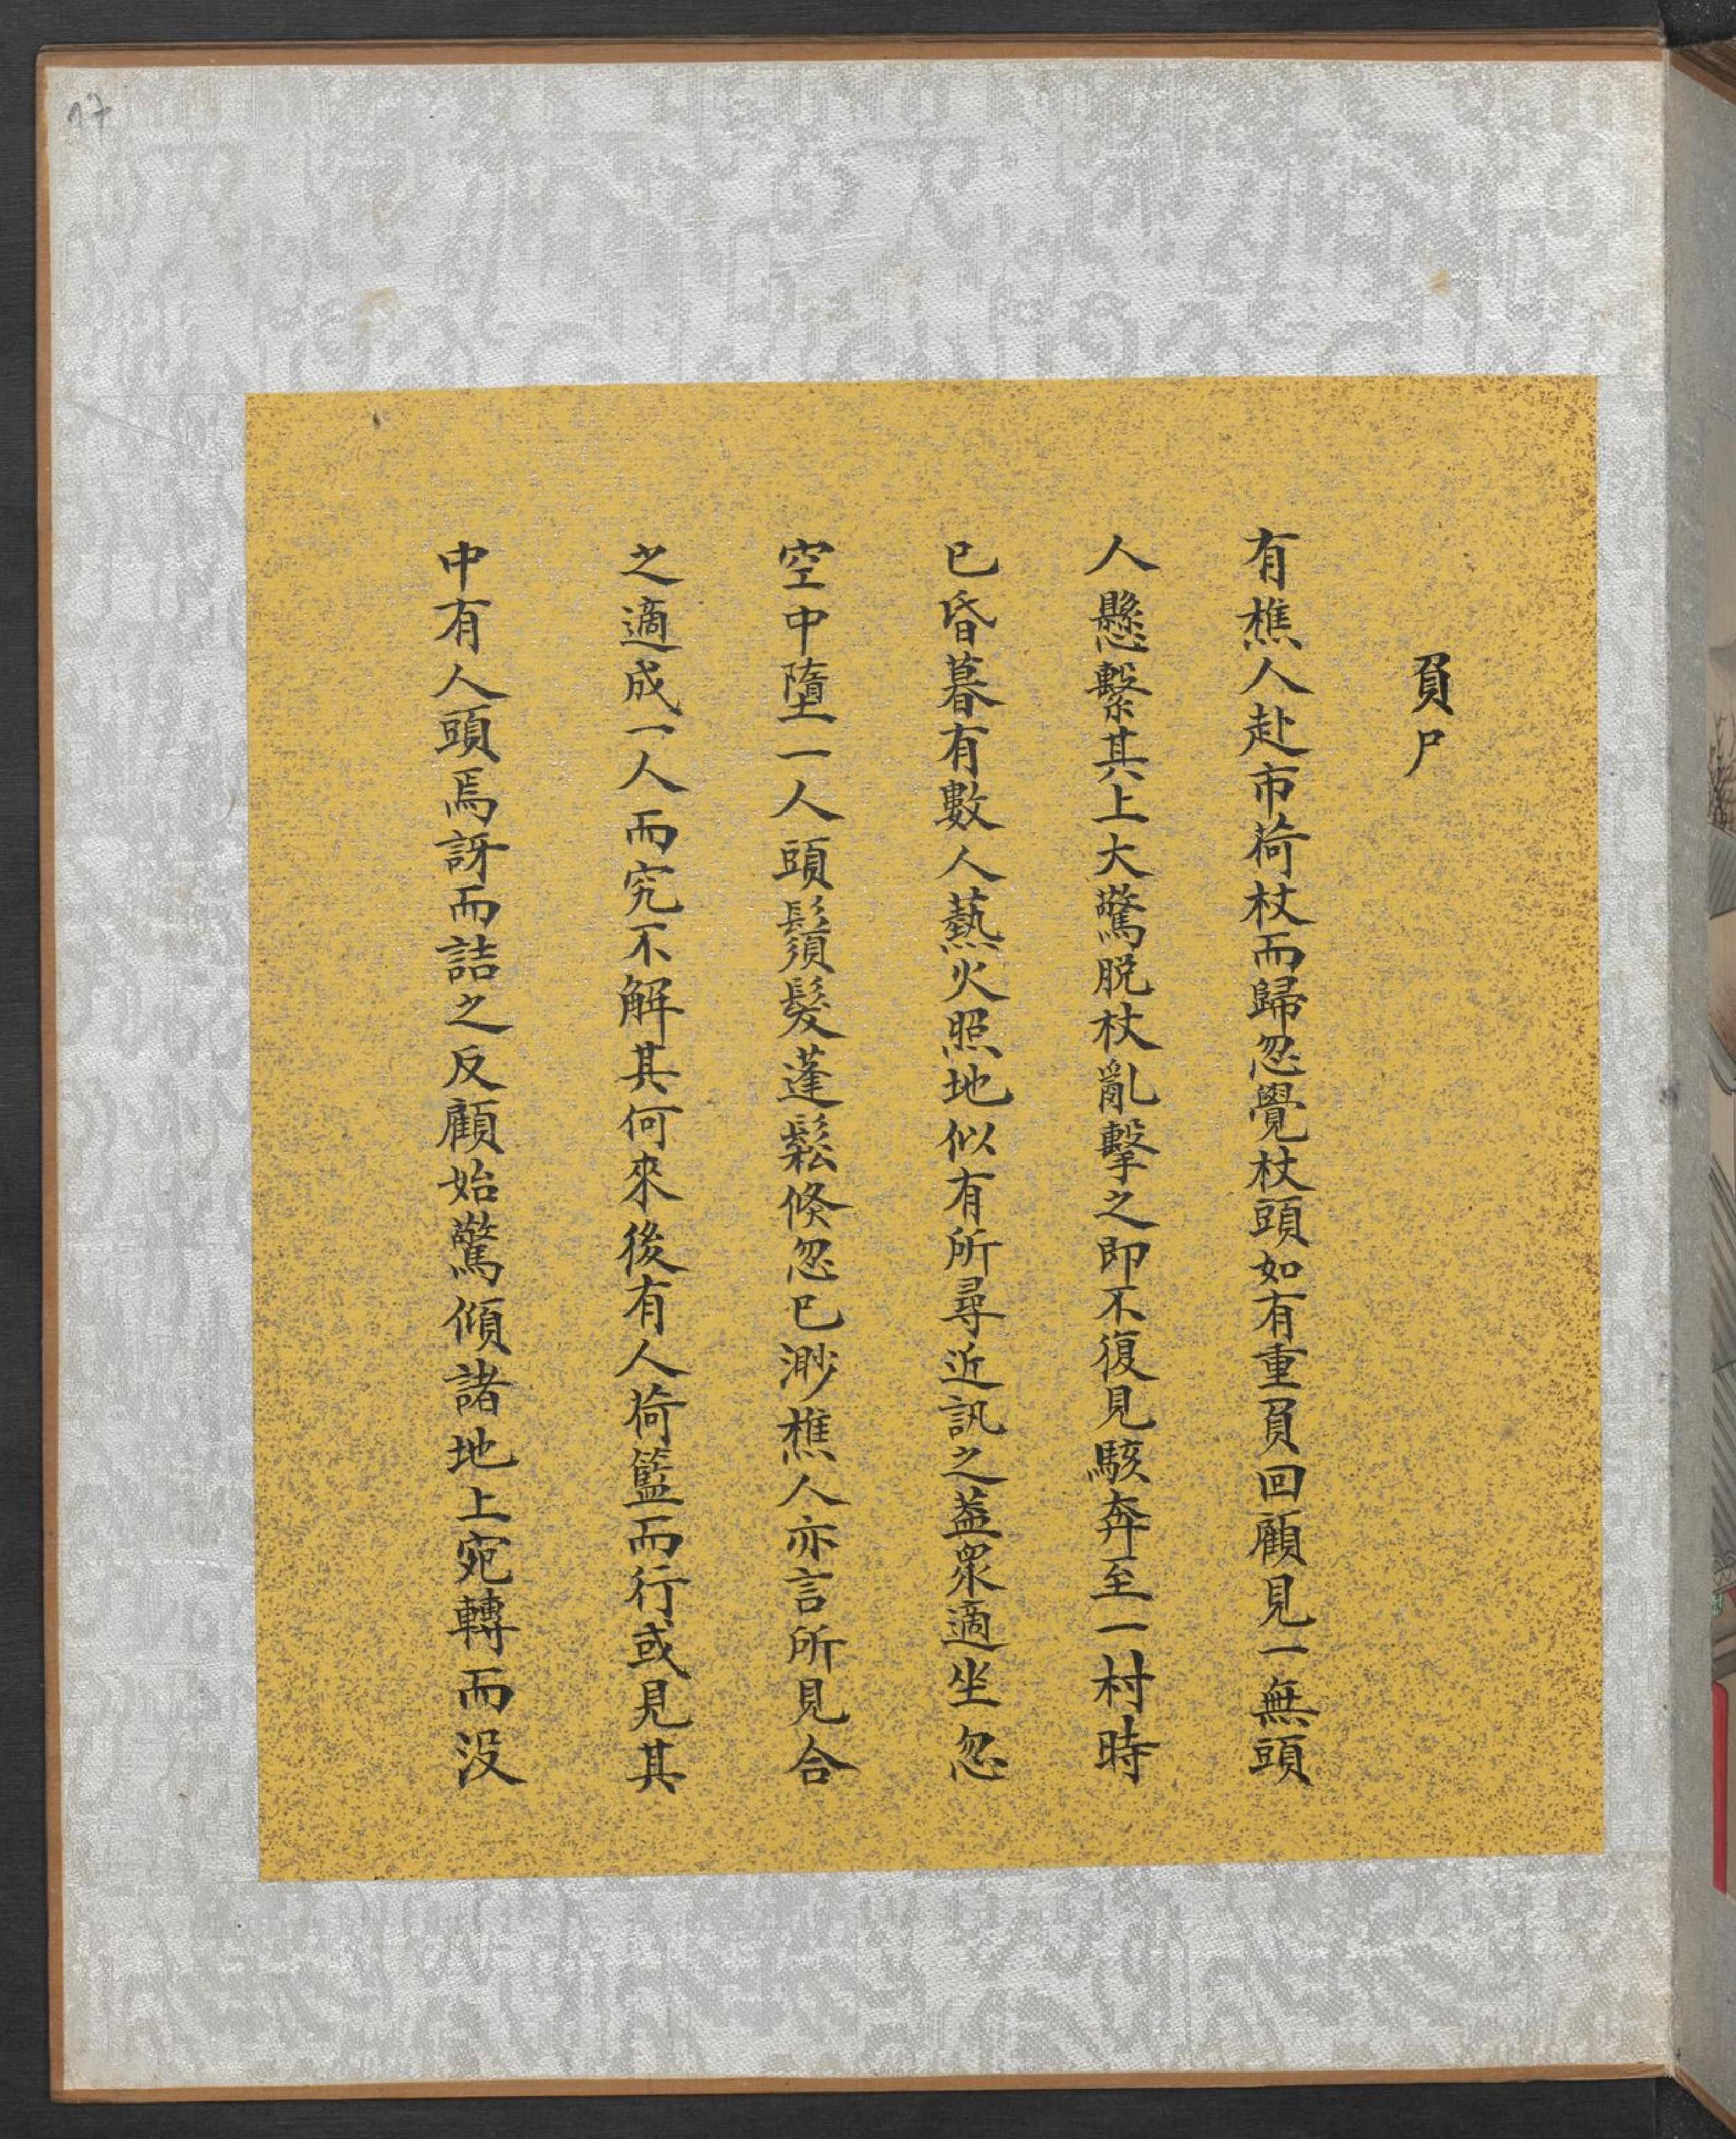 17
負尸
有樵人赴市荷杖而歸忽覺杖頭如有重負回顧見一無頭
人懸繫其上大驚脱杖亂擊之即不復見駭奔至一村時
已昏暮有數人爇火照地似有所尋近訊之蓋衆適坐忽
空中墮一人頭鬚髮蓬鬆倏忽已渺樵人亦言所見合
之適成一人而究不解其何來後有人荷籃而行或見其
中有人頭焉訝而詰之反顧始驚傾諸地上宛轉而没